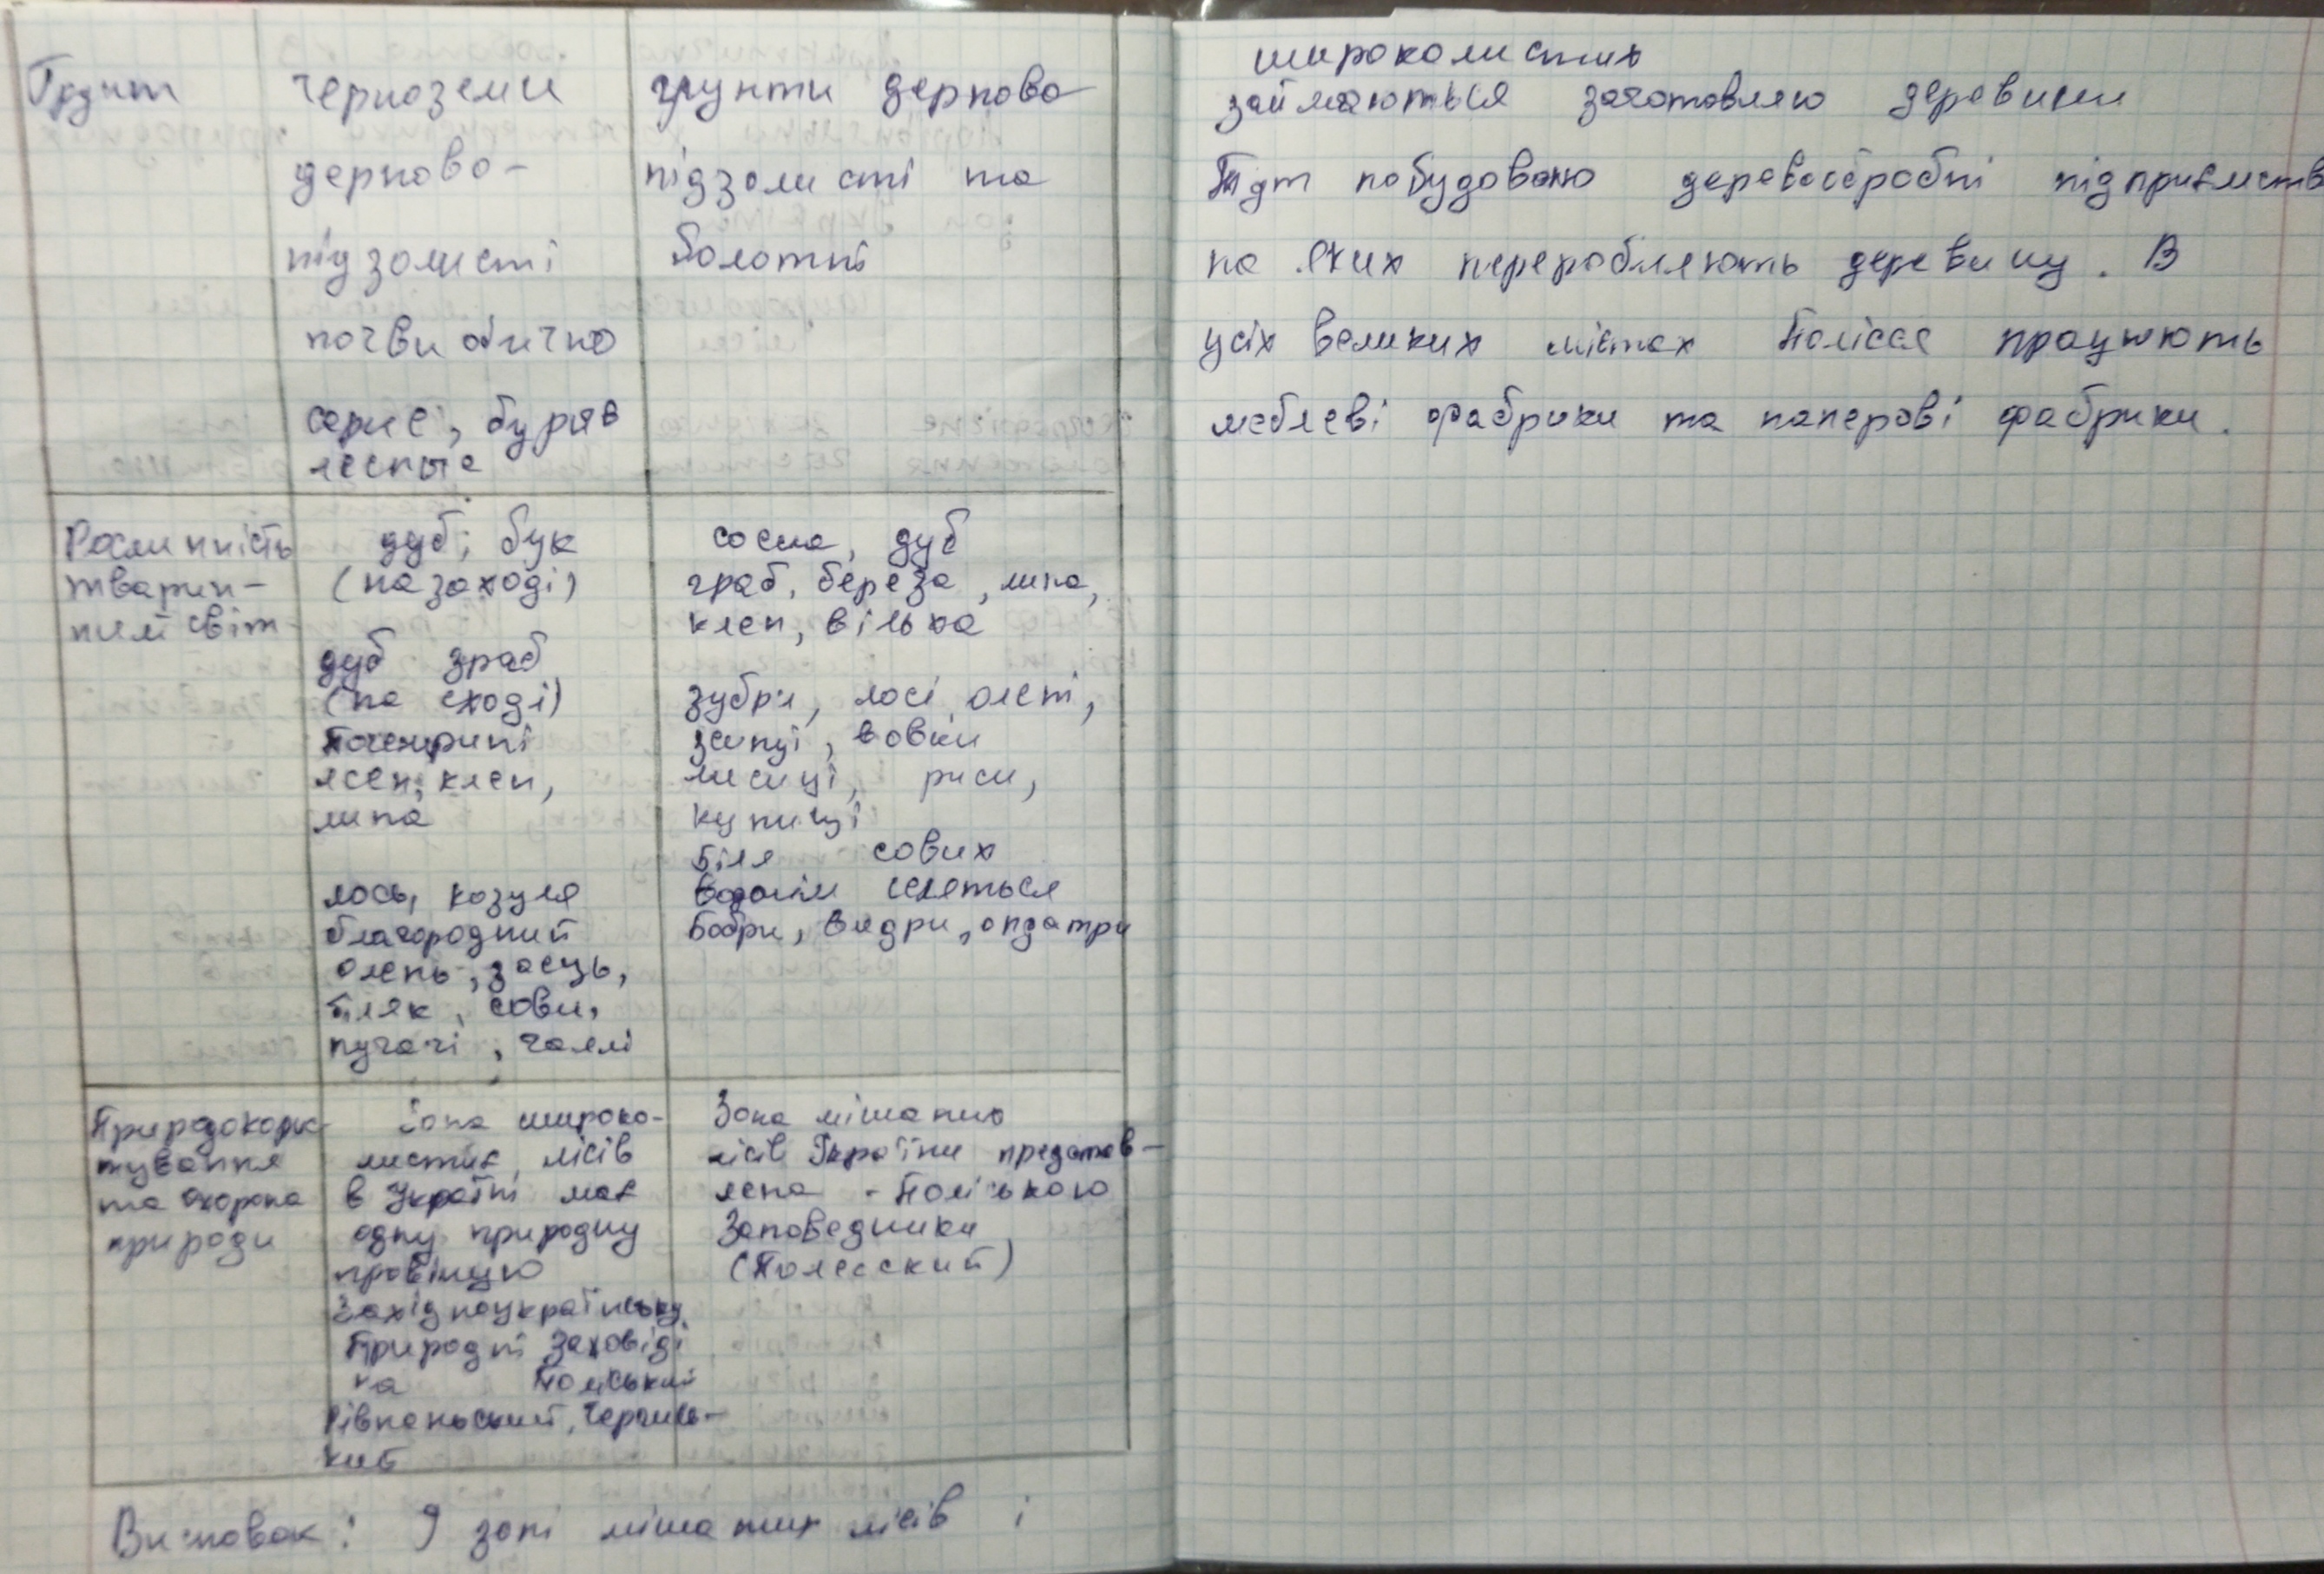 Грунт
черноземи
дерново-
підзолисті
почви обично
серие, бурив
лесные
грунти дерново
підзолисті та
болотні
Рослинність
тварин-
ний світ
дуб, бук
(на заході)
дуб граб
(на сході)
ясен, клен,
липа
лось, козуля
благородний
олень, заєць,
біляк, сови,
пугачі, чаплі
сосна, дуб
граб, береза, липа,
клен, вільха
зубри, лосі, олені,
зайці, вовки
лисиці, риси,
куниці
Біля сових
водойм селяться
бобри, видри, ондатри
Природокорис-
тування
та охорона
природи
Зона широко-
листих лісів
в Україні має
одну природну
провінцію
Західноукраїнську
Природні заповіді
на Поліський
Рівненський, Черемсь-
кий
Зона мішаних
лісів України представ-
лена - Поліською
Заповедники
(Полесский)
Висновок: У зоні мішаних лісів і
широколистих
займаються заготовлею деревини
Тут побудовано деревообробні підприємств
на яких переробляють деревину. В
усіх великих містах Полісся працюють
меблеві фабрики та паперові фабрики.